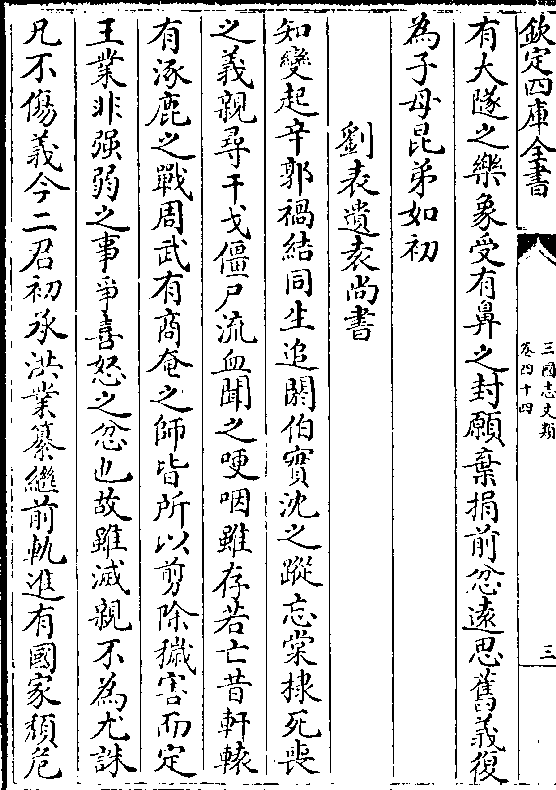 欽定四庫全書
三國志文類
卷四十四
三
有大隧之樂象受有鼻之封願棄捐前忿遠思舊義復
為子母昆弟如初
劉表遺袁尚書
知變起辛郭禍結同生追閼伯實沈之蹤忘棠棣死喪
之義親尋干戈僵尸流血聞之哽咽雖存若亡昔軒轅
有涿鹿之戰周武有商奄之師皆所以剪除穢害而定
王業非强弱之事爭喜怒之忿也故雖滅親不為尤誅
凡不傷義今二君初承洪業纂繼前軌進有國家頽危